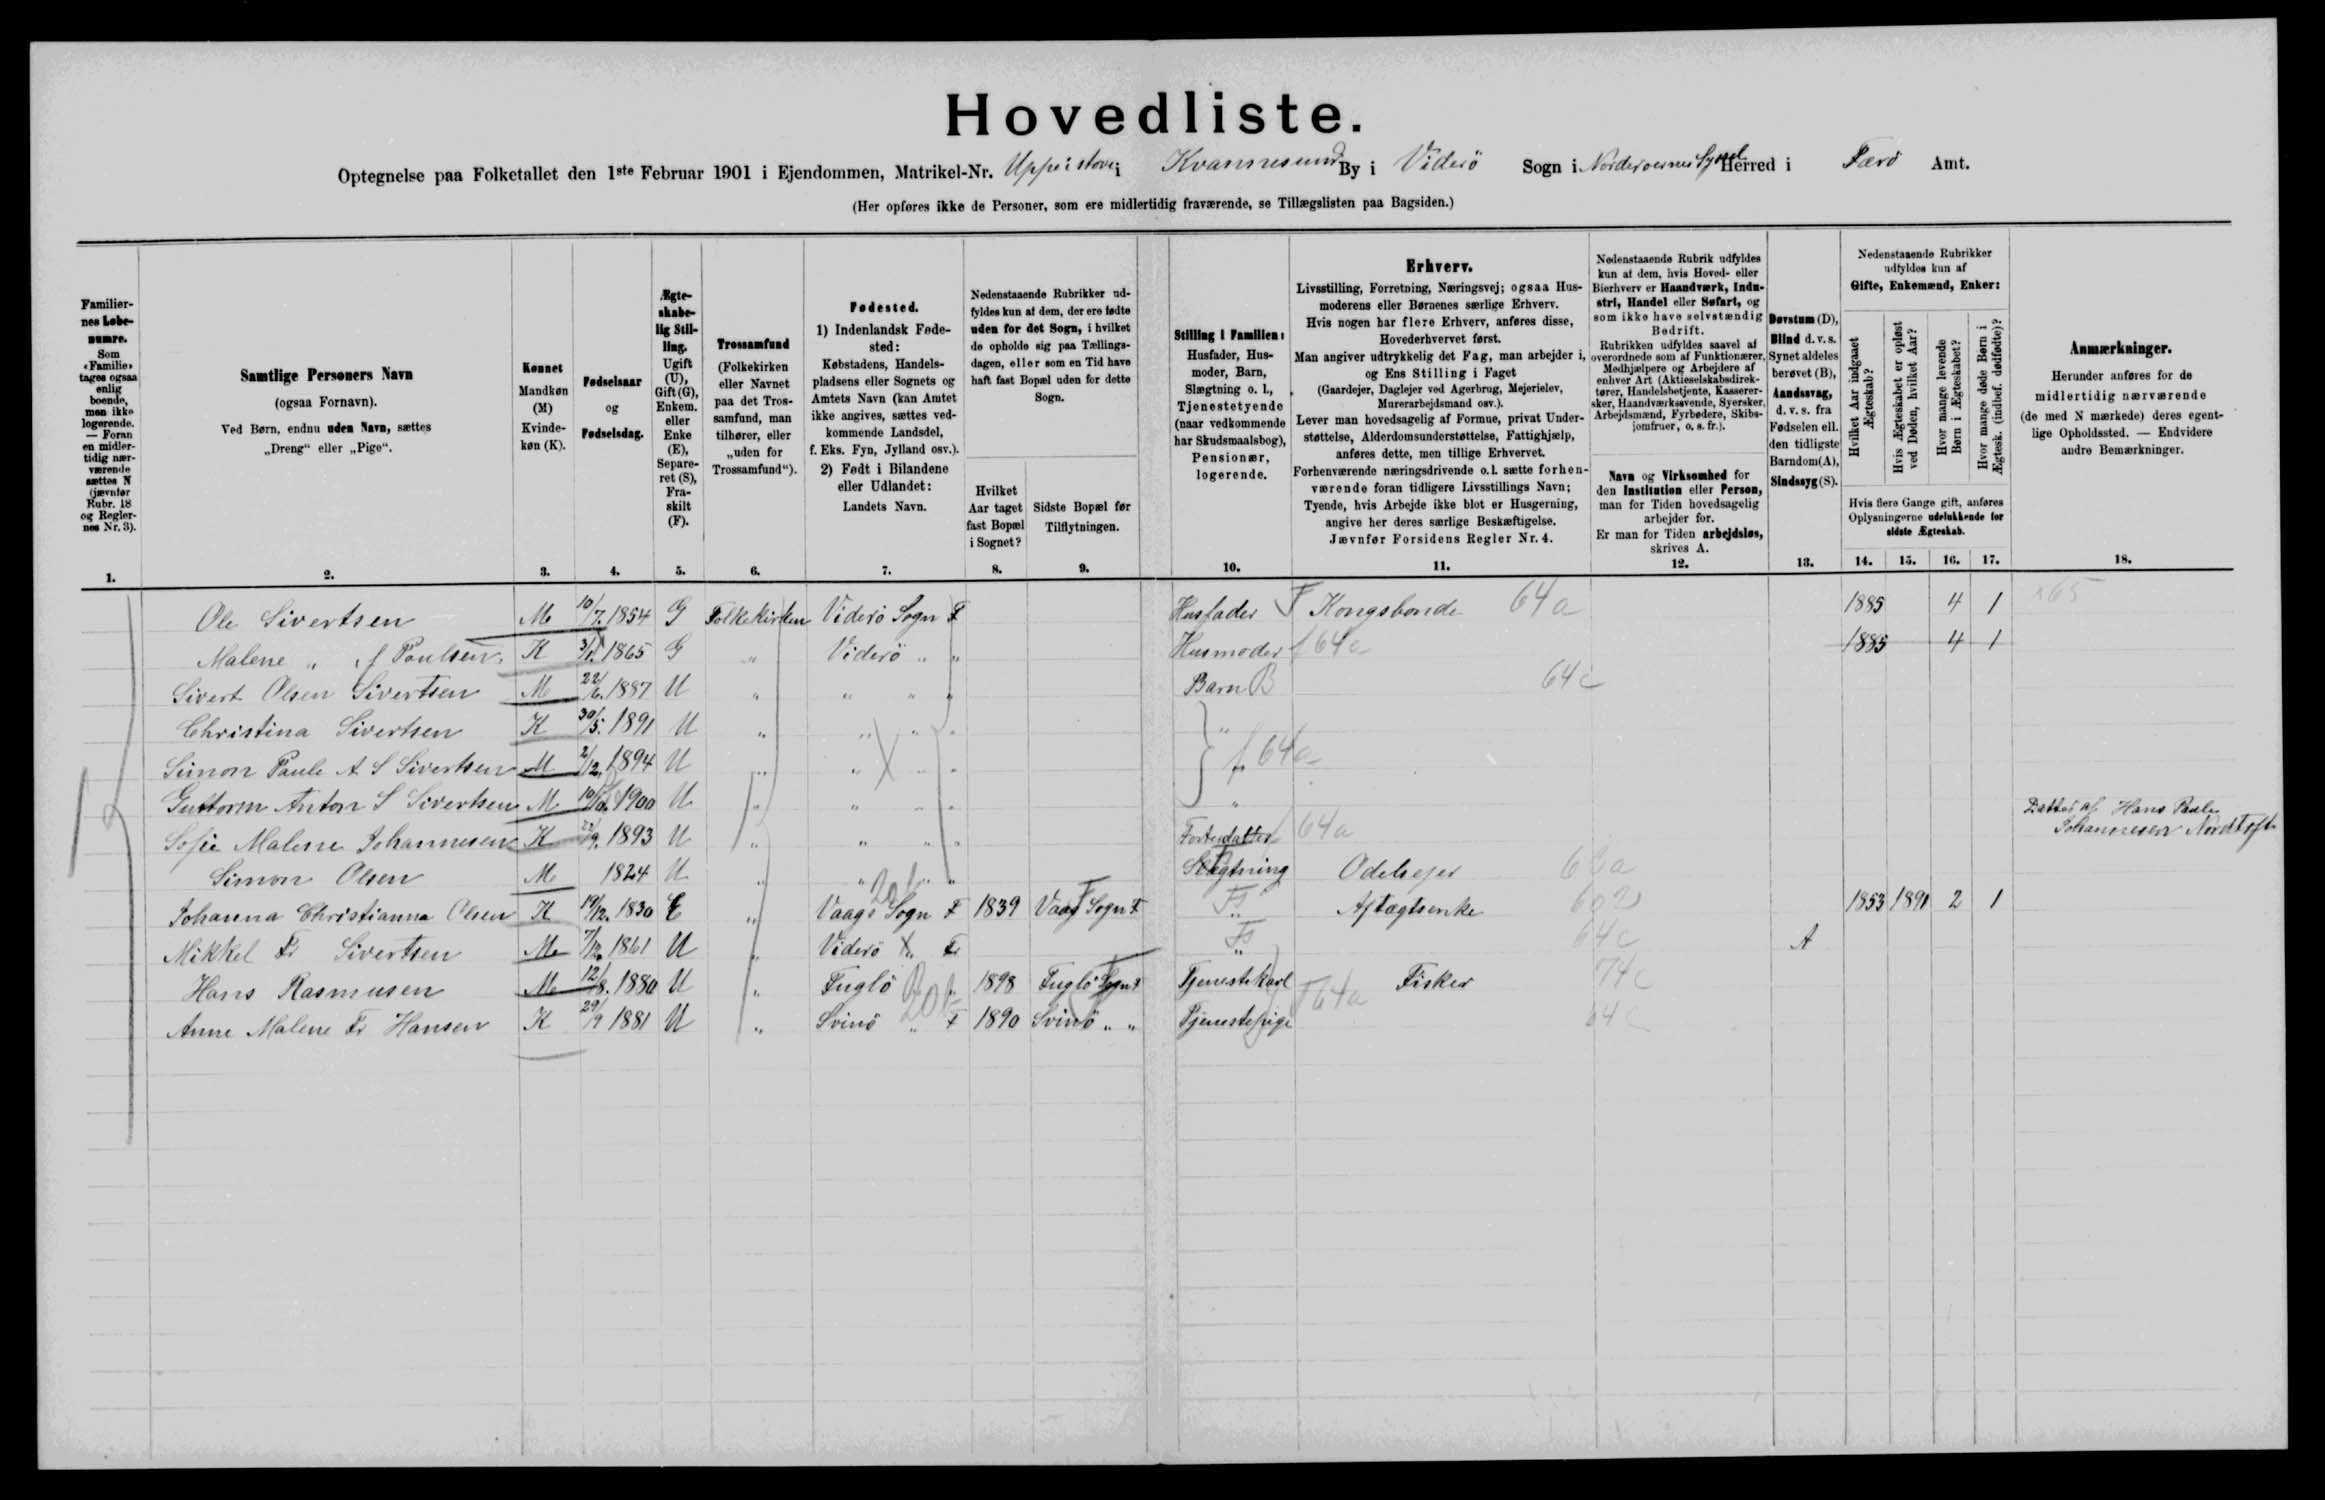 Hovedliste.
Optegnelse paa Folketallet den 1ste Februar 1901 i Ejendommen, Matrikel-Nr. Uppistove i Kvannesund By i Viderö Sogn i Norderoernes Syssel Herred i Færö Amt.
(Her opføres ikke de Personer, som ere midlertidig fraværende, se Tillægslisten paa Bagsiden.)
Familiernes Løbenumre. Som «Familie» tages ogsaa enlig boende, men ikke logerende. — Foran en midlertidig nærværende sættes N (jævnfør Rubr. 18 og Reglernes Nr. 3).
Samtlige Personers Navn (ogsaa Fornavn). Ved Børn, endnu uden Navn, sættes „Dreng“ eller „Pige“.
Kønnet Mandkøn (M) Kvindekøn (K).
Fødselsaar og Fødselsdag.
Ægteskabelig Stilling. Ugift (U), Gift (G), Enkem. eller Enke (E), Separeret (S), Fraskilt (F).
Trossamfund (Folkekirken eller Navnet paa det Trossamfund, man tilhører, eller „uden for Trossamfund“).
Fødested. 1) Indenlandsk Fødested: Købstadens, Handelspladsens eller Sognets og Amtets Navn (kan Amtet ikke angives, sættes vedkommende Landsdel, f. Eks. Fyn, Jylland osv.). 2) Født i Bilandene eller Udlandet: Landets Navn.
Nedenstaaende Rubrikker udfyldes kun af dem, der ere fødte uden for det Sogn, i hvilket de opholde sig paa Tællingsdagen, eller som en Tid have haft fast Bopæl uden for dette Sogn.
Hvilket Aar taget fast Bopæl i Sognet?
Sidste Bopæl før Tilflytningen.
Stilling i Familien: Husfader, Husmoder, Barn, Slægtning o. l., Tjenestetyende (naar vedkommende har Skudsmaalsbog), Pensionær, logerende.
Erhverv.
Livsstilling, Forretning, Næringsvej; ogsaa Husmoderens eller Børnenes særlige Erhverv.
Hvis nogen har flere Erhverv, anføres disse, Hovederhvervet først.
Man angiver udtrykkelig det Fag, man arbejder i, og Ens Stilling i Faget
(Gaardejer, Daglejer ved Agerbrug, Mejerielev, Murerarbejdsmand osv.).
Lever man hovedsagelig af Formue, privat Understøttelse, Alderdomsunderstøttelse, Fattighjælp, anføres dette, men tillige Erhvervet.
Forhenværende næringsdrivende o. l. sætte forhenværende foran tidligere Livsstillings Navn;
Tyende, hvis Arbejde ikke blot er Husgerning, angive her deres særlige Beskæftigelse.
Jævnfør Forsidens Regler Nr. 4.
Nedenstaaende Rubrik udfyldes kun af dem, hvis Hoved- eller Bierhverv er Haandværk, Industri, Handel eller Søfart, og som ikke have selvstændig Bedrift.
Rubrikken udfyldes saavel af overordnede som af Funktionærer, Medhjælpere og Arbejdere af enhver Art (Aktieselskabsdirektører, Handelsbetjente, Kasserersker, Haandværkssvende, Syersker, Arbejdsmænd, Fyrbødere, Skibsjomfruer, o. s. fr.).
Navn og Virksomhed for den Institution eller Person, man for Tiden hovedsagelig arbejder for.
Er man for Tiden arbejdsløs, skrives A.
Døvstum (D), Blind d. v. s. Synet aldeles berøvet (B), Aandssvag, d. v. s. fra Fødselen ell. den tidligste Barndom (A), Sindssyg (S).
Nedenstaaende Rubrikker udfyldes kun af Gifte, Enkemænd, Enker:
Hvilket Aar indgaaet Ægteskab?
Hvis Ægteskabet er opløst ved Døden, hvilket Aar?
Hvor mange levende Børn i Ægteskabet?
Hvor mange døde Børn i Ægtesk. (indbef. dødfødte)?
Hvis flere Gange gift, anføres Oplysningerne udelukkende for sidste Ægteskab.
Anmærkninger.
Herunder anføres for de midlertidig nærværende (de med N mærkede) deres egentlige Opholdssted. — Endvidere andre Bemærkninger.
1. 2. 3. 4. 5. 6. 7. 8. 9. 10. 11. 12. 13. 14. 15. 16. 17. 18.
Ole Sivertsen M 10/7. 1854 G Folkekirken Viderö Sogn F Husfader F Kongsbonde 64a 1885 4 1 65
Malene „ f Poulsen K 3/1. 1865 G „ Viderö „ „ Husmoder f 64a 1885 4 1
Sivert Olsen Sivertsen M 22/6. 1887 U „ „ „ „ Barn B 64c
Christina Sivertsen K 30/5. 1891 U „ „ „ „ „
Simon Paule A S Sivertsen M 2/12. 1894 U „ „ „ „ „ f 64a
Guttorm Anton S Sivertsen M 10/10. 1900 U „ „ „ „ „
Sofie Malene Johannesen K 22/9. 1893 U „ „ „ „ Fosterdatter f 64a Datter af Hans Paule Johannesen Nordtoft
Simon Olsen M 1824 U „ „ „ „ Slægtning Odelsejer 63a
Johanna Christianna Olsen K 19/12. 1830 E „ Vaags Sogn F 1839 Vaag Sogn F „ Aftægtsenke 1853 1891 2 1
Mikkel Fr Sivertsen M 7/12. 1861 U „ Viderö „ F „ 64c A
Hans Rasmusen M 12/8. 1880 U „ Fuglö „ 1898 Fuglö Sogn F Tjenestekarl Fisker 74c
Anne Malene Fr Hansen K 29/9 1881 U „ Svinö „ F 1890 Svinö „ „ Tjenestepige f 64a 64c